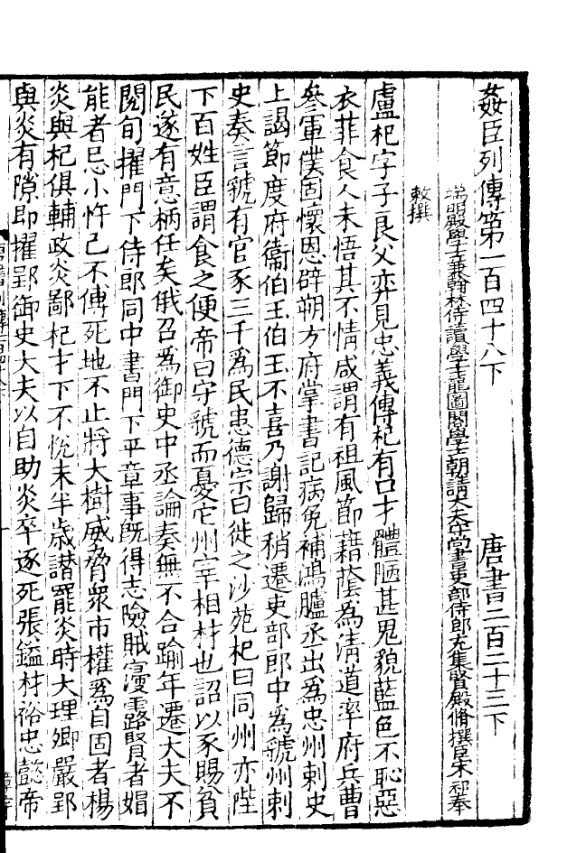 姦臣列傳第一百四十八下　唐書二百二十三下
端明殿學士兼翰林侍讀學士龍圖閣學士朝請大夫守尚書吏部侍郎充集賢殿脩撰臣宋祁奉
敕撰
盧杞字子良父弈見忠義傳杞有口才體陋甚鬼貌藍色不恥惡
衣菲食人未悟其不情咸謂有祖風節藉蔭為清道率府兵曹
參軍僕固懷恩辟朔方府掌書記病免補鴻臚丞出為忠州刺史
上謁節度府衞伯玉伯玉不喜乃謝歸稍遷吏部郎中為虢州刺
史奏言虢有官豕三千為民患德宗曰徙之沙苑杞曰同州亦陛
下百姓臣謂食之便帝曰守虢而憂它州宰相材也詔以豕賜貧
民遂有意柄任矣俄召為御史中丞論奏無不合踰年遷大夫不
閱旬擢門下侍郎同中書門下平章事既得志險賊寖露賢者媢
能者忌小忤己不傅死地不止將大樹威脅衆市權為自固者楊
炎與杞俱輔政炎鄙杞才下不悅未半歲譖罷炎時大理卿嚴郢
與炎有隙即擢郢御史大夫以自助炎卒逐死張鎰材裕忠懿帝